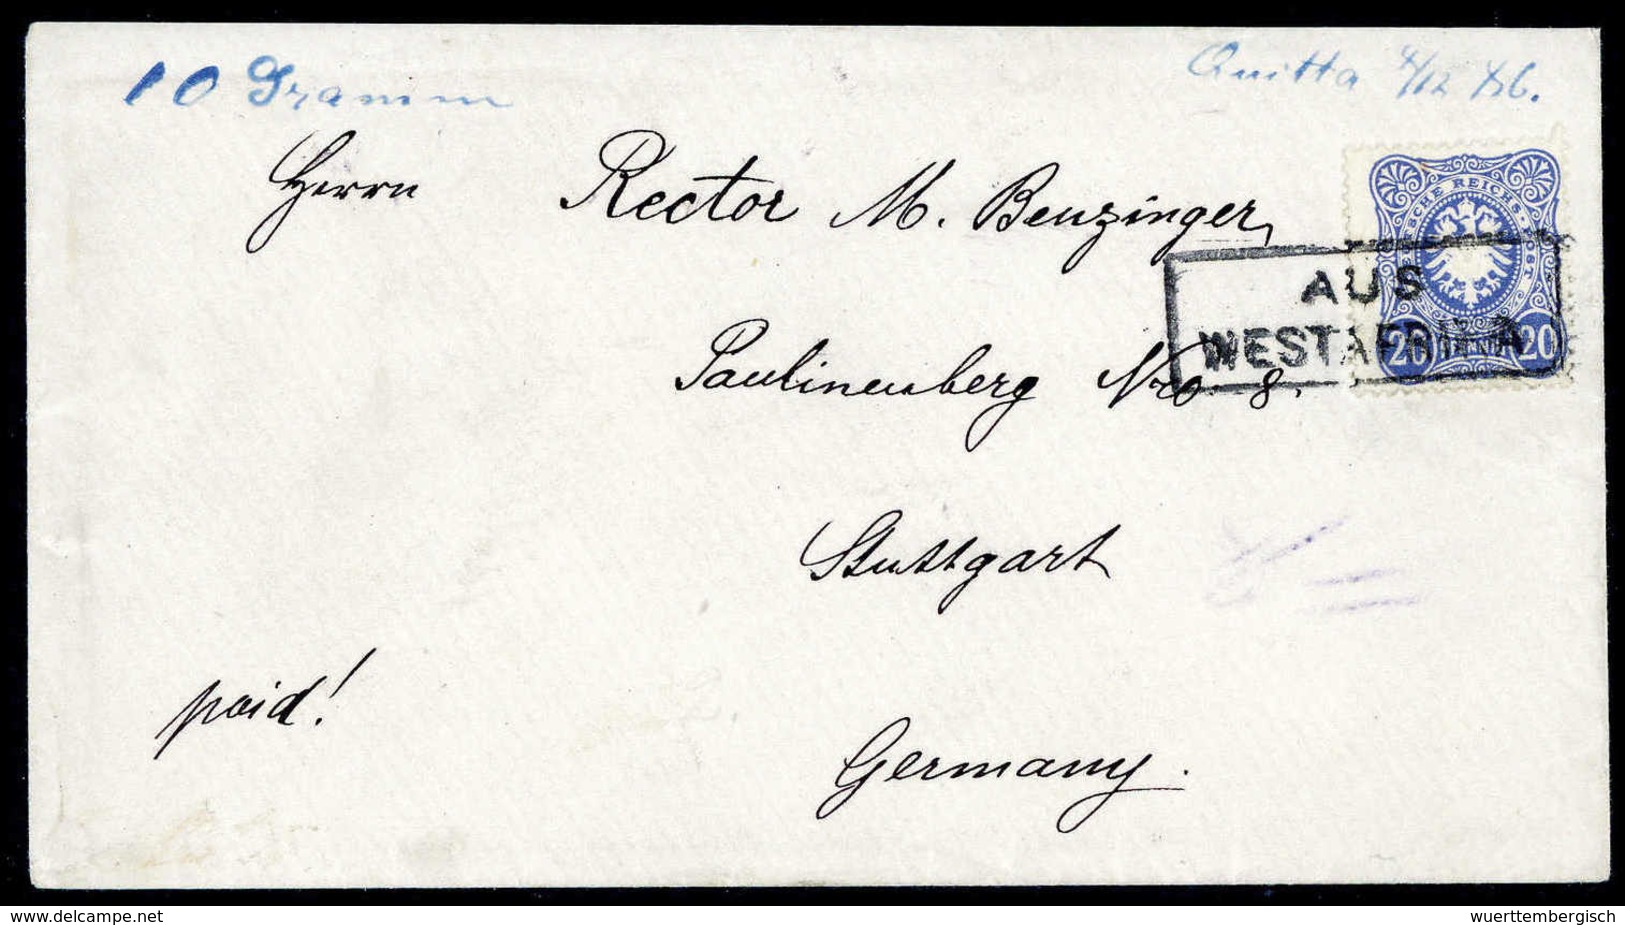 10 Gramm
Quitta 4/12 86.
Herrn Rector M. Benzinger,
Paulinenberg Nro 8.
Stuttgart
paid!
Germany.
DEUTSCHE REICHS-POST
20 PFENNIG 20
AUS
WESTAFRIKA
www.delcampe.net
wuerttembergisch